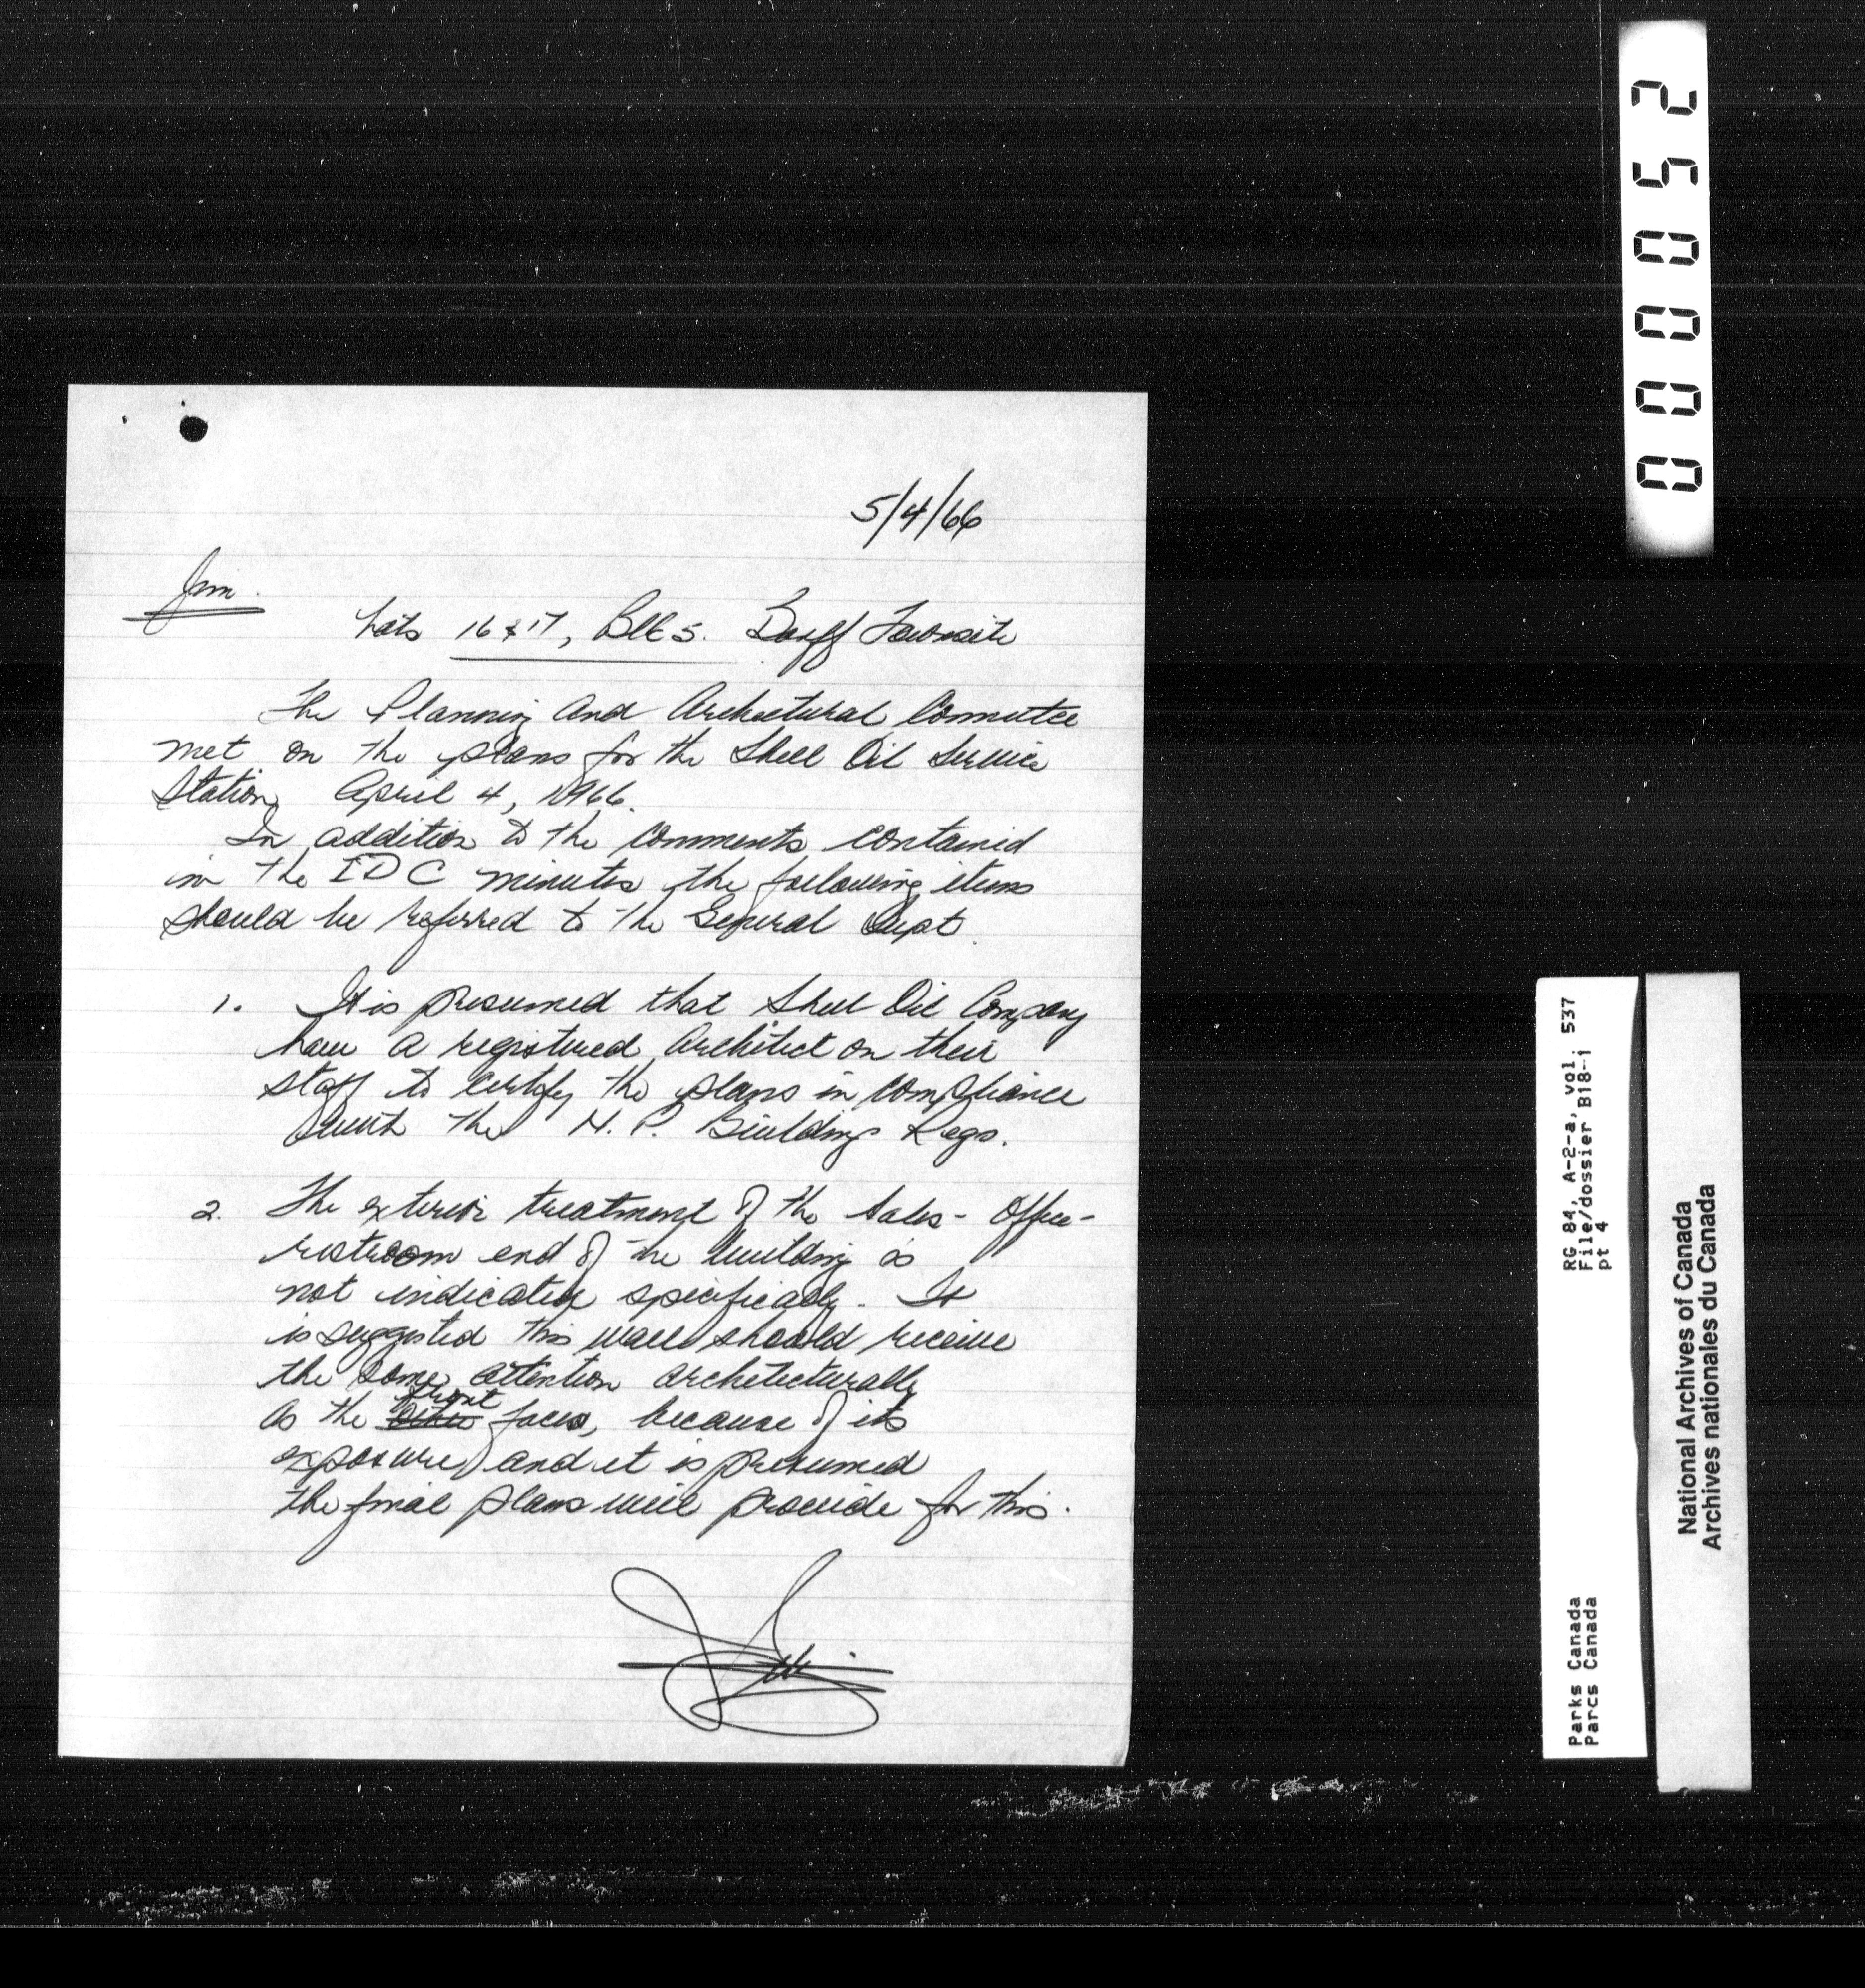 000052
5/4/66
Jim.
Lots 16 & 17, Blk 5. Banff Townsite
The Planning and Architectural Committee
met on the plans for the Shell Oil Service
Station, April 4, 1966.
In addition to the comments contained
in the IDC minutes the following items
should be referred to the General Supt.
1. It is presumed that Shell Oil Company
have a registered architect on their
staff to certify the plans in compliance
with the N.P. Building Regs.
2. The exterior treatment of the Sales - Office -
restroom end of the building is
not indicated specifically. It
is suggested this wall should receive
the same attention architecturally
as the front faces, because of its
exposure, and it is presumed
the final plans will provide for this.
RG 84, A-2-a, vol. 537
File/dossier B18-i
pt 4
Parks Canada
Parcs Canada
National Archives of Canada
Archives nationales du Canada